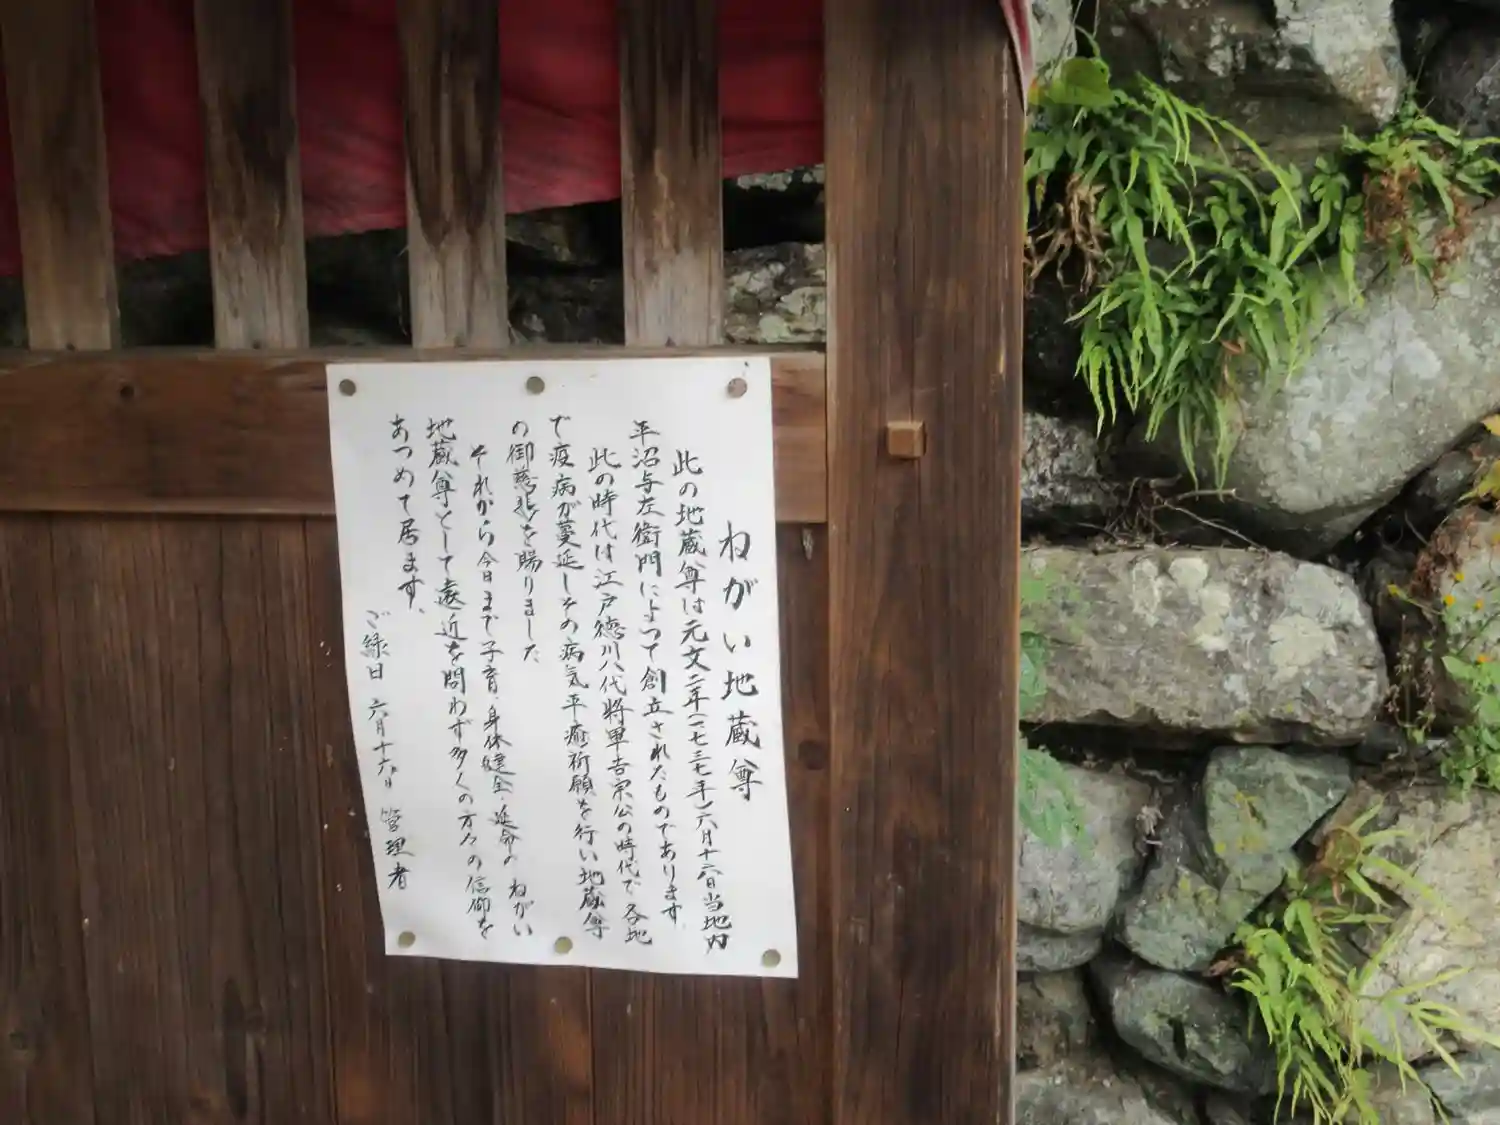 ねがい地蔵尊
此の地蔵尊は元文二年(一七三七年)六月十六日当地内
平沼与左衛門によって創立されたものであります
此の時代は江戸徳川八代将軍吉宗公の時代で各地
で疫病が蔓延しその病気平癒祈願を行い地蔵尊
の御慈悲を賜りました
それから今日まで子育、身体健全、延命のねがい
地蔵尊として遠近を問わず多くの方々の信仰を
あつめて居ます。
ご縁日 六月十六日 管理者